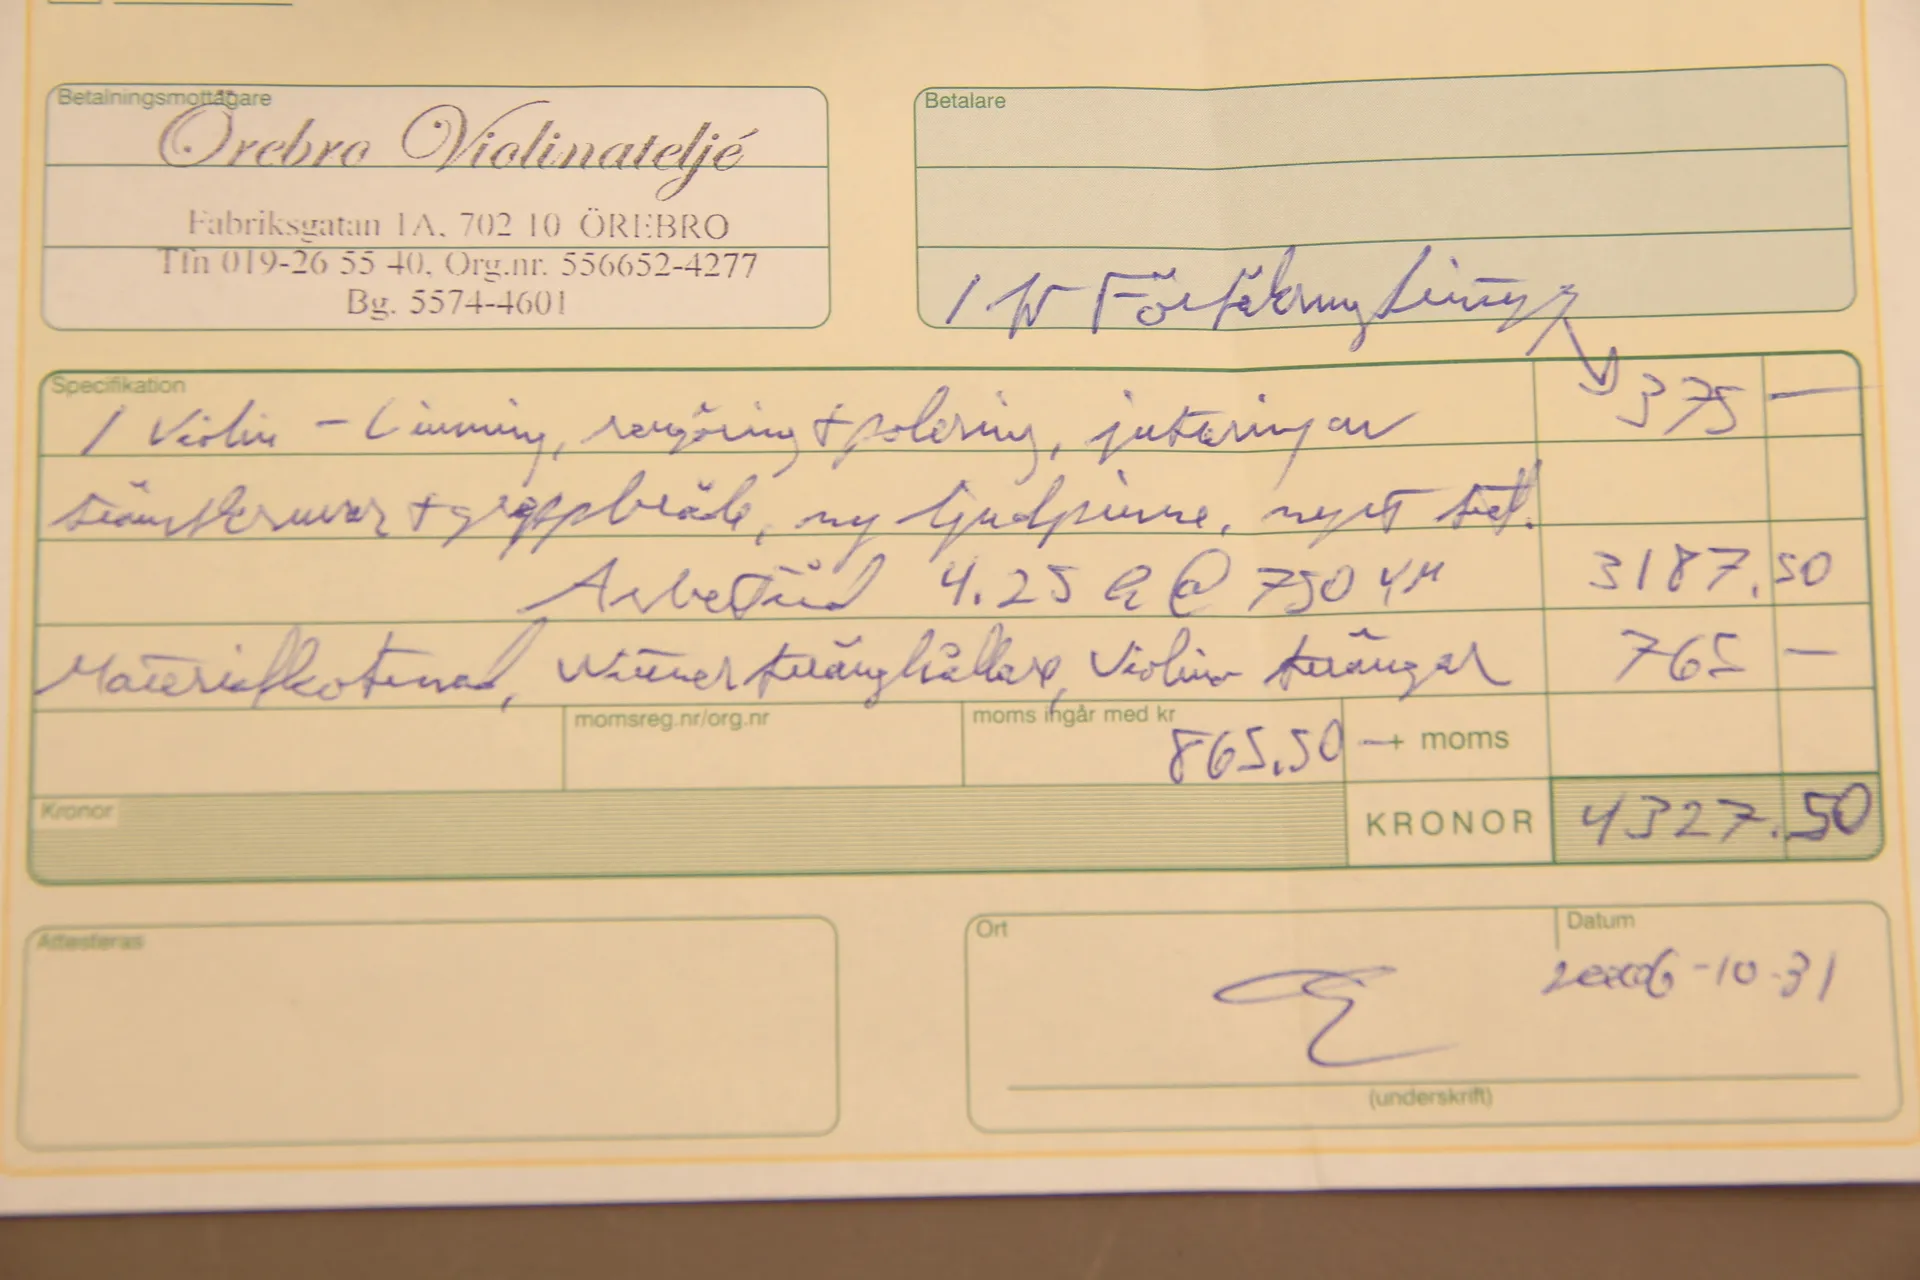 Betalningsmottagare
Örebro Violinateljé
Fabriksgatan 1A, 702 10 ÖREBRO
Tfn 019-26 55 40, Org.nr. 556652-4277
Bg. 5574-4601
Betalare
1 st Försäkring
Specifikation
1 Violin - Limning, rengöring + polering, justering av 375 —
stämskruvar + greppbräde, ny ljudpinne, nytt stall.
Arbetstid 4.25 h @ 750 kr 3187.50
Materialkostnad, Wittner stränghållare, Violin strängar 765 —
momsreg.nr/org.nr
moms ingår med kr
865.50 — + moms
Kronor
KRONOR 4327.50
Attesteras
Ort
Datum
2006-10-31
(underskrift)